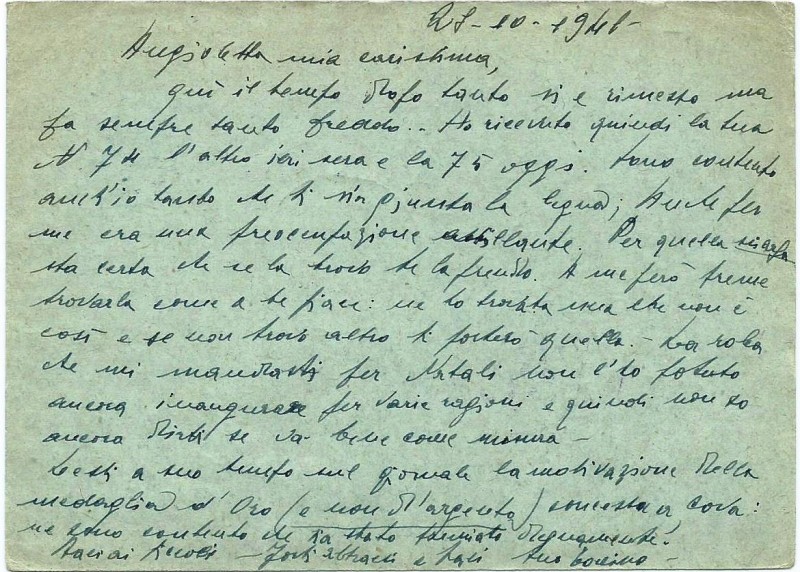 27-10-1941-
Angioletta mia carissima,
qui il tempo dopo tanto si è rimesso ma
fa sempre tanto freddo.. Ho ricevuto quindi la tua
N° 74 l'altro ieri sera e la 75 oggi. Sono contento
anch'io tanto che ti sia giunta la legna; Anche per
me era una preoccupazione assillante. Per quella
sta certa che se la trovo te la prendo. A me però preme
trovarla come a te piace: ne ho trovata una che non è
così e se non trovo altro ti porterò quella. - La roba
che mi mandasti per Natali non l'ho potuto
ancora inaugurare per varie ragioni e quindi non so
ancora dirti se va bene come misura -
Lessi a suo tempo sul giornale la motivazione della
medaglia d'Oro (e non d'argento) concessa a Cova:
ne sono contento che sia stato premiato degnamente.
Baciai - Forti abbracci e baci tuo